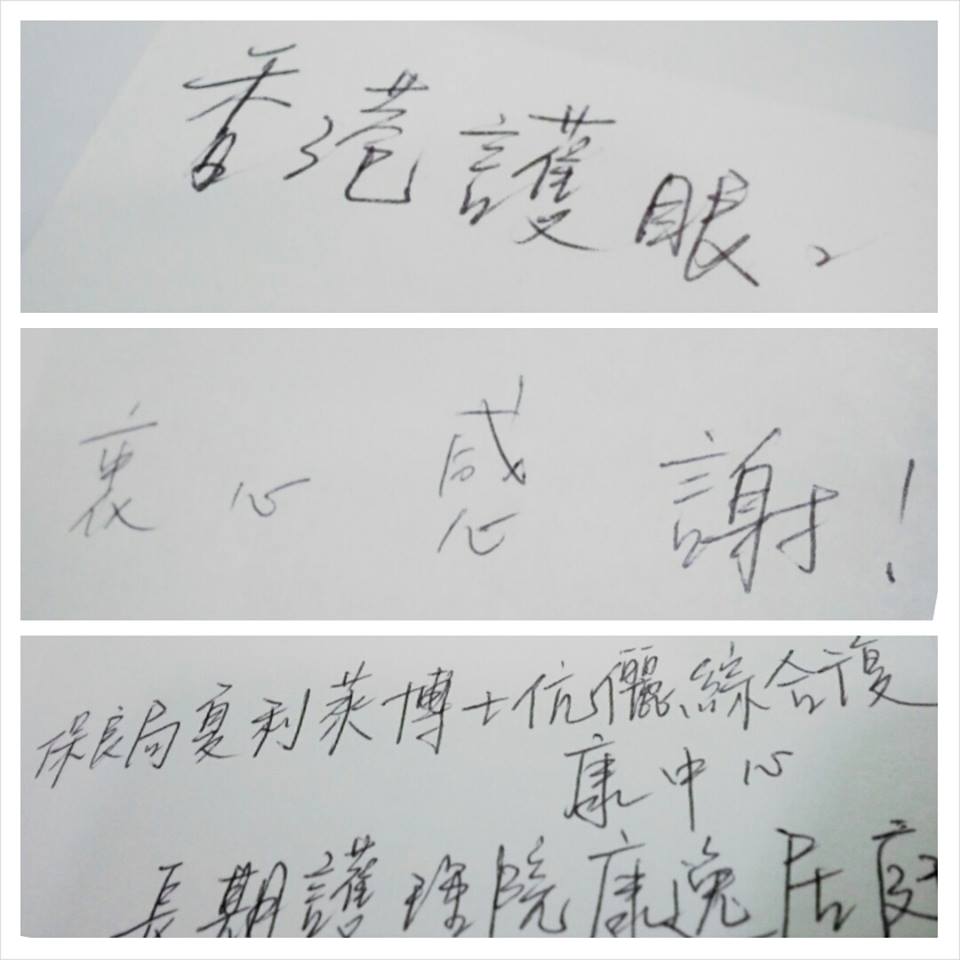 香港護眼、
衷心感謝!
保良局夏利萊博士伉儷綜合復
康中心
長期護理院康逸居